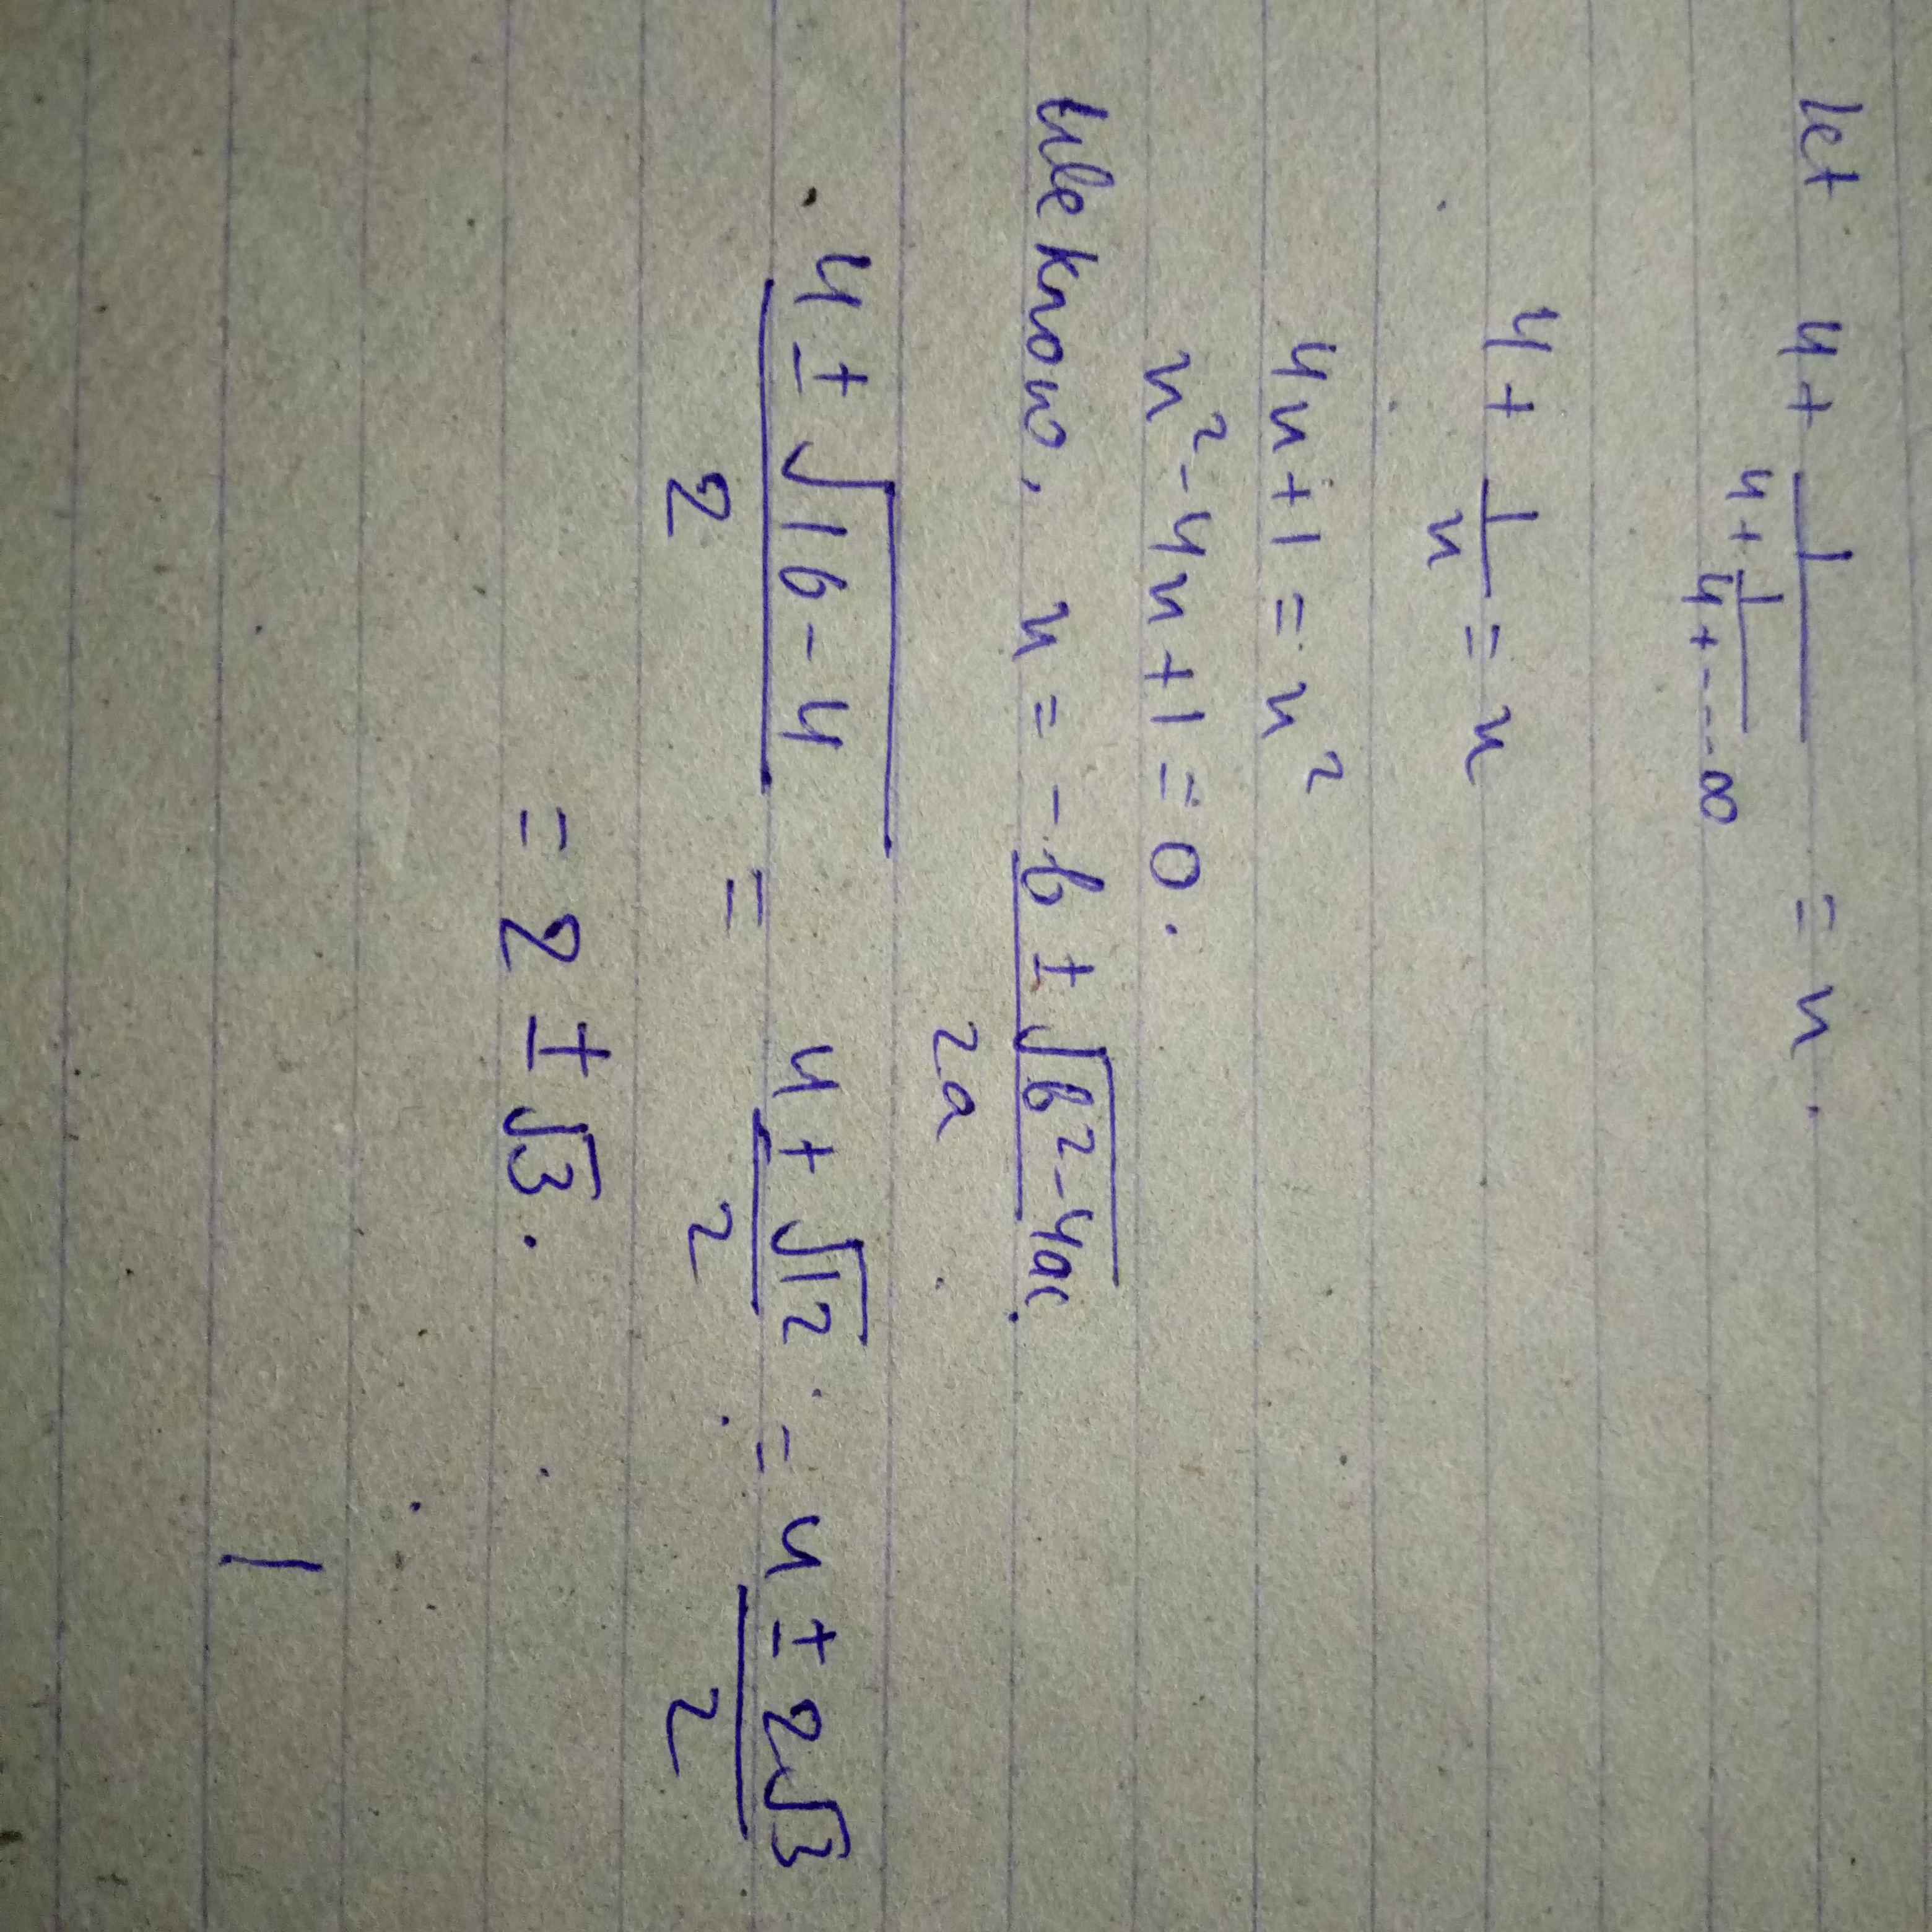 let 4 + 1/(4 + 1/(4 + ---∞)) = x.
4 + 1/x = x
4x + 1 = x²
x² - 4x + 1 = 0.
We know, x = -b ± √(b² - 4ac) / 2a
(4 ± √(16 - 4)) / 2 = (4 + √12) / 2 = (4 ± 2√3) / 2
= 2 ± √3.